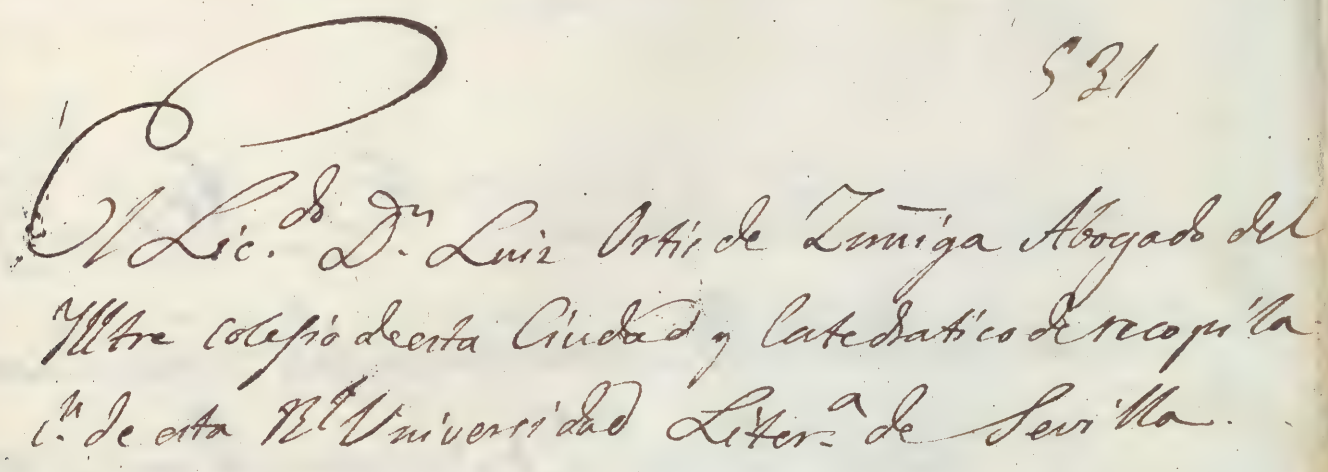 531
El Lic.do Dn. Luis Ortiz de Zuñiga Abogado del
Illtre colegio de esta Ciudad y Catedratico de recopila
cn. de esta Rl Universidad Liter.a de Sevilla.